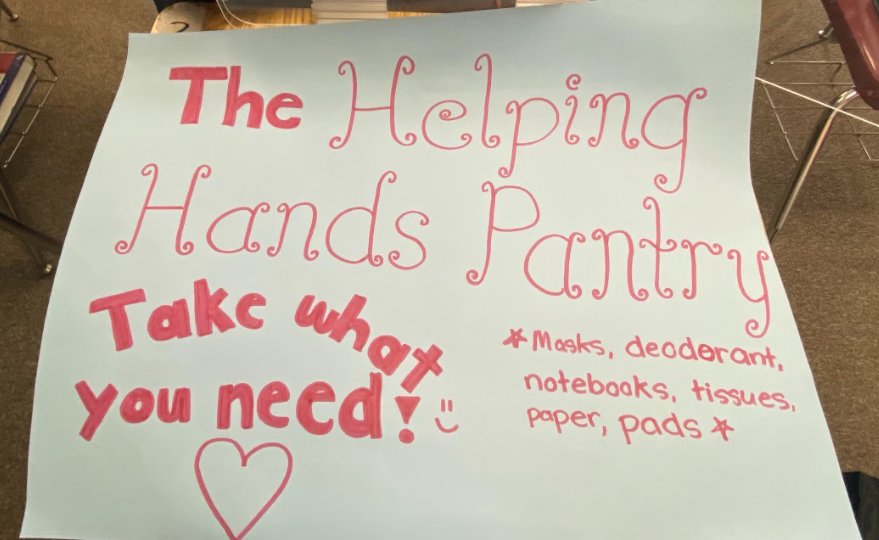 The Helping
Hands Pantry
Take what
you need! :)
*Masks, deodorant,
notebooks, tissues,
paper, pads*